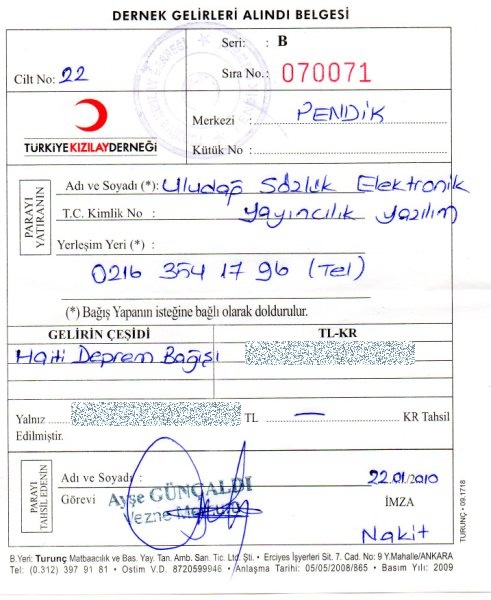 DERNEK GELİRLERİ ALINDI BELGESİ
Cilt No: 22
Seri: B
Sıra No.: 070071
TÜRKİYEKIZILAYDERNEĞİ
Merkezi : PENDİK
Kütük No :
PARAYI YATIRANIN
Adı ve Soyadı (*): Uludağ Sözlük Elektronik
T.C. Kimlik No : Yayıncılık Yazılım
Yerleşim Yeri (*) :
0216 354 17 96 (Tel)
(*) Bağış Yapanın isteğine bağlı olarak doldurulur.
GELİRİN ÇEŞİDİ TL-KR
Haiti Deprem Bağışı
Yalnız TL — KR Tahsil
Edilmiştir.
PARAYI TAHSİL EDENİN
Adı ve Soyadı : 22.01/2010
Görevi Ayşe GÜNÇALDI İMZA
Vezne
Nakit
TURUNÇ - 09.1718
B.Yeri: Turunç Matbaacılık ve Bas. Yay. Tan. Amb. San. Tic. Ltd. Şti. • Erciyes İşyerleri Sit. 7. Cad. No: 9 Y.Mahalle/ANKARA
Tel: (0.312) 397 91 81 • Ostim V.D. 8720599946 • Anlaşma Tarihi: 05/05/2008/865 • Basım Yılı: 2009